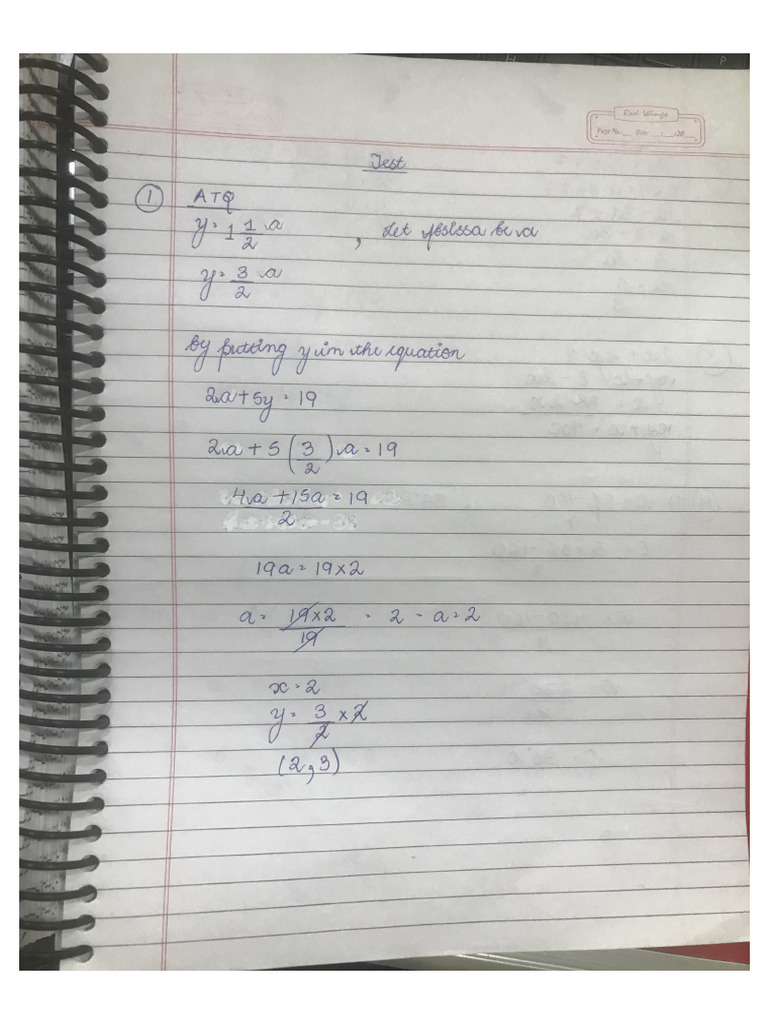 Red Wings
Page No. Date : : 20
Test
① ATQ
y = 1 1/2 a , Let be a
y = 3/2 a
by putting y in the equation
2a + 5y = 19
2a + 5 (3/2) a = 19
4a + 15a / 2 = 19
19a = 19 × 2
a = 19 × 2 / 19 = 2 - a = 2
x = 2
y = 3/2 × 2
(2, 3)